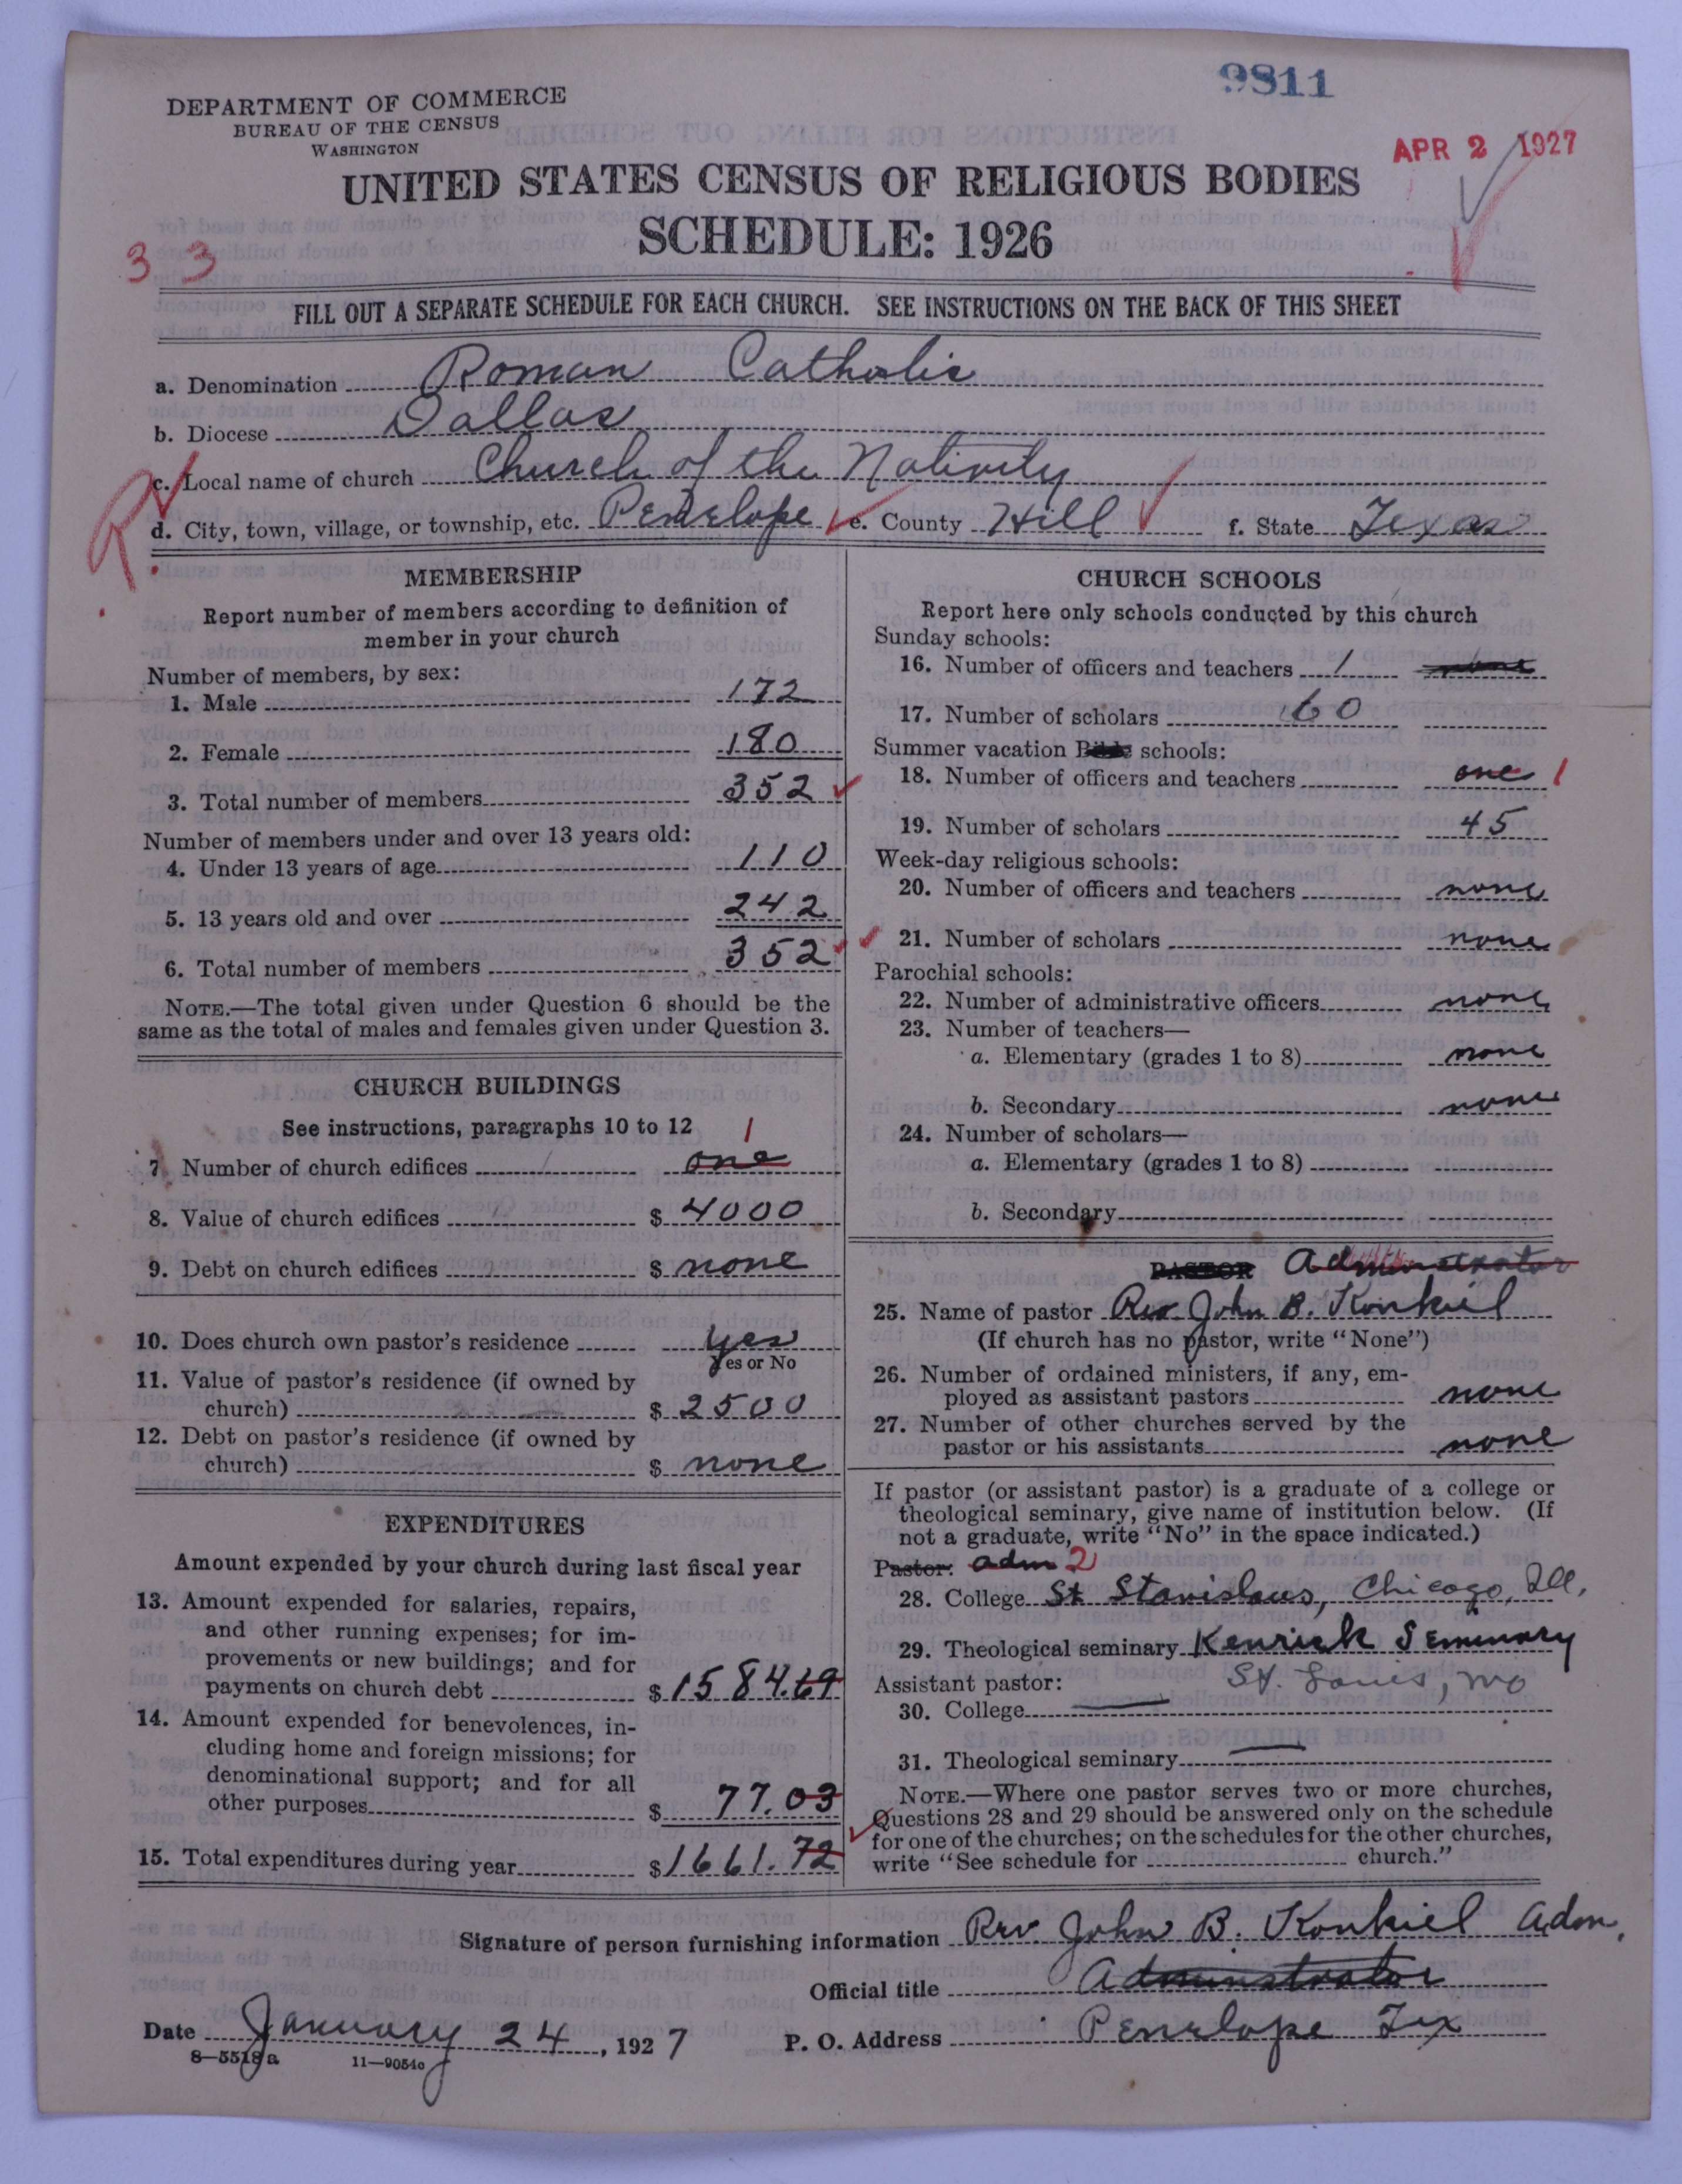 9811
DEPARTMENT OF COMMERCE
BUREAU OF THE CENSUS
WASHINGTON
APR 2 1927
UNITED STATES CENSUS OF RELIGIOUS BODIES
SCHEDULE: 1926
33
FILL OUT A SEPARATE SCHEDULE FOR EACH CHURCH. SEE INSTRUCTIONS ON THE BACK OF THIS SHEET
a. Denomination Roman Catholic
b. Diocese Dallas
c. Local name of church Church of the Nativity
d. City, town, village, or township, etc. Penelope e. County Hill f. State Texas
MEMBERSHIP
Report number of members according to definition of
member in your church
Number of members, by sex:
1. Male 172
2. Female 180
3. Total number of members 352
Number of members under and over 13 years old:
4. Under 13 years of age 110
5. 13 years old and over 242
6. Total number of members 352
NOTE.—The total given under Question 6 should be the
same as the total of males and females given under Question 3.
CHURCH BUILDINGS
See instructions, paragraphs 10 to 12
1
7. Number of church edifices one
8. Value of church edifices $ 4000
9. Debt on church edifices $ none
10. Does church own pastor's residence yes
Yes or No
11. Value of pastor's residence (if owned by
church) $ 2500
12. Debt on pastor's residence (if owned by
church) $ none
EXPENDITURES
Amount expended by your church during last fiscal year
13. Amount expended for salaries, repairs,
and other running expenses; for im-
provements or new buildings; and for
payments on church debt $ 1584.69
14. Amount expended for benevolences, in-
cluding home and foreign missions; for
denominational support; and for all
other purposes $ 77.03
15. Total expenditures during year $ 1661.72
CHURCH SCHOOLS
Report here only schools conducted by this church
Sunday schools:
16. Number of officers and teachers 1 none
17. Number of scholars 60
Summer vacation Bible schools:
18. Number of officers and teachers one 1
19. Number of scholars 45
Week-day religious schools:
20. Number of officers and teachers none
21. Number of scholars none
Parochial schools:
22. Number of administrative officers none
23. Number of teachers—
a. Elementary (grades 1 to 8) none
b. Secondary none
24. Number of scholars—
a. Elementary (grades 1 to 8)
b. Secondary
PASTOR Administrator
25. Name of pastor Rev. John B. Konkiel
(If church has no pastor, write "None")
26. Number of ordained ministers, if any, em-
ployed as assistant pastors none
27. Number of other churches served by the
pastor or his assistants none
If pastor (or assistant pastor) is a graduate of a college or
theological seminary, give name of institution below. (If
not a graduate, write "No" in the space indicated.)
Pastor: adm 2
28. College St Stanislaus, Chicago, Ill.
29. Theological seminary Kenrick Seminary
St. Louis, Mo
Assistant pastor:
30. College
31. Theological seminary
NOTE.—Where one pastor serves two or more churches,
Questions 28 and 29 should be answered only on the schedule
for one of the churches; on the schedules for the other churches,
write "See schedule for church."
Signature of person furnishing information Rev John B. Konkiel Adm.
Official title Adminstrator
Date January 24, 1927 P. O. Address Penelope Tex
8—5518a 11—9054o